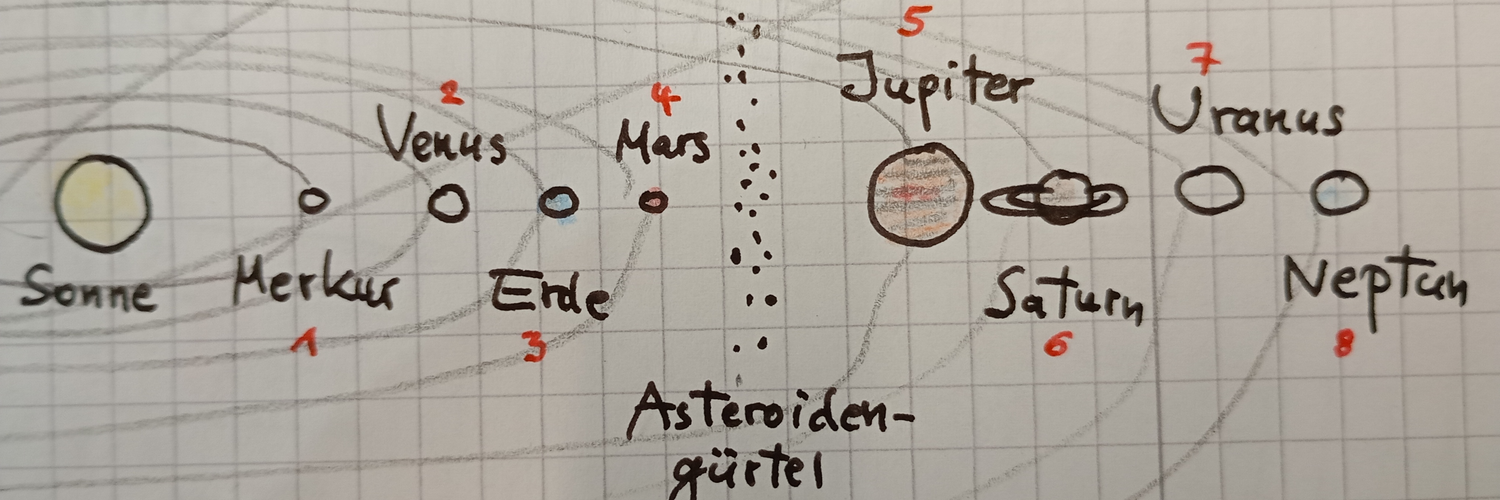 5
Jupiter
7
Uranus
2
Venus
4
Mars
Sonne
Merkur
1
Erde
3
Saturn
6
Neptun
8
Asteroiden-
gürtel